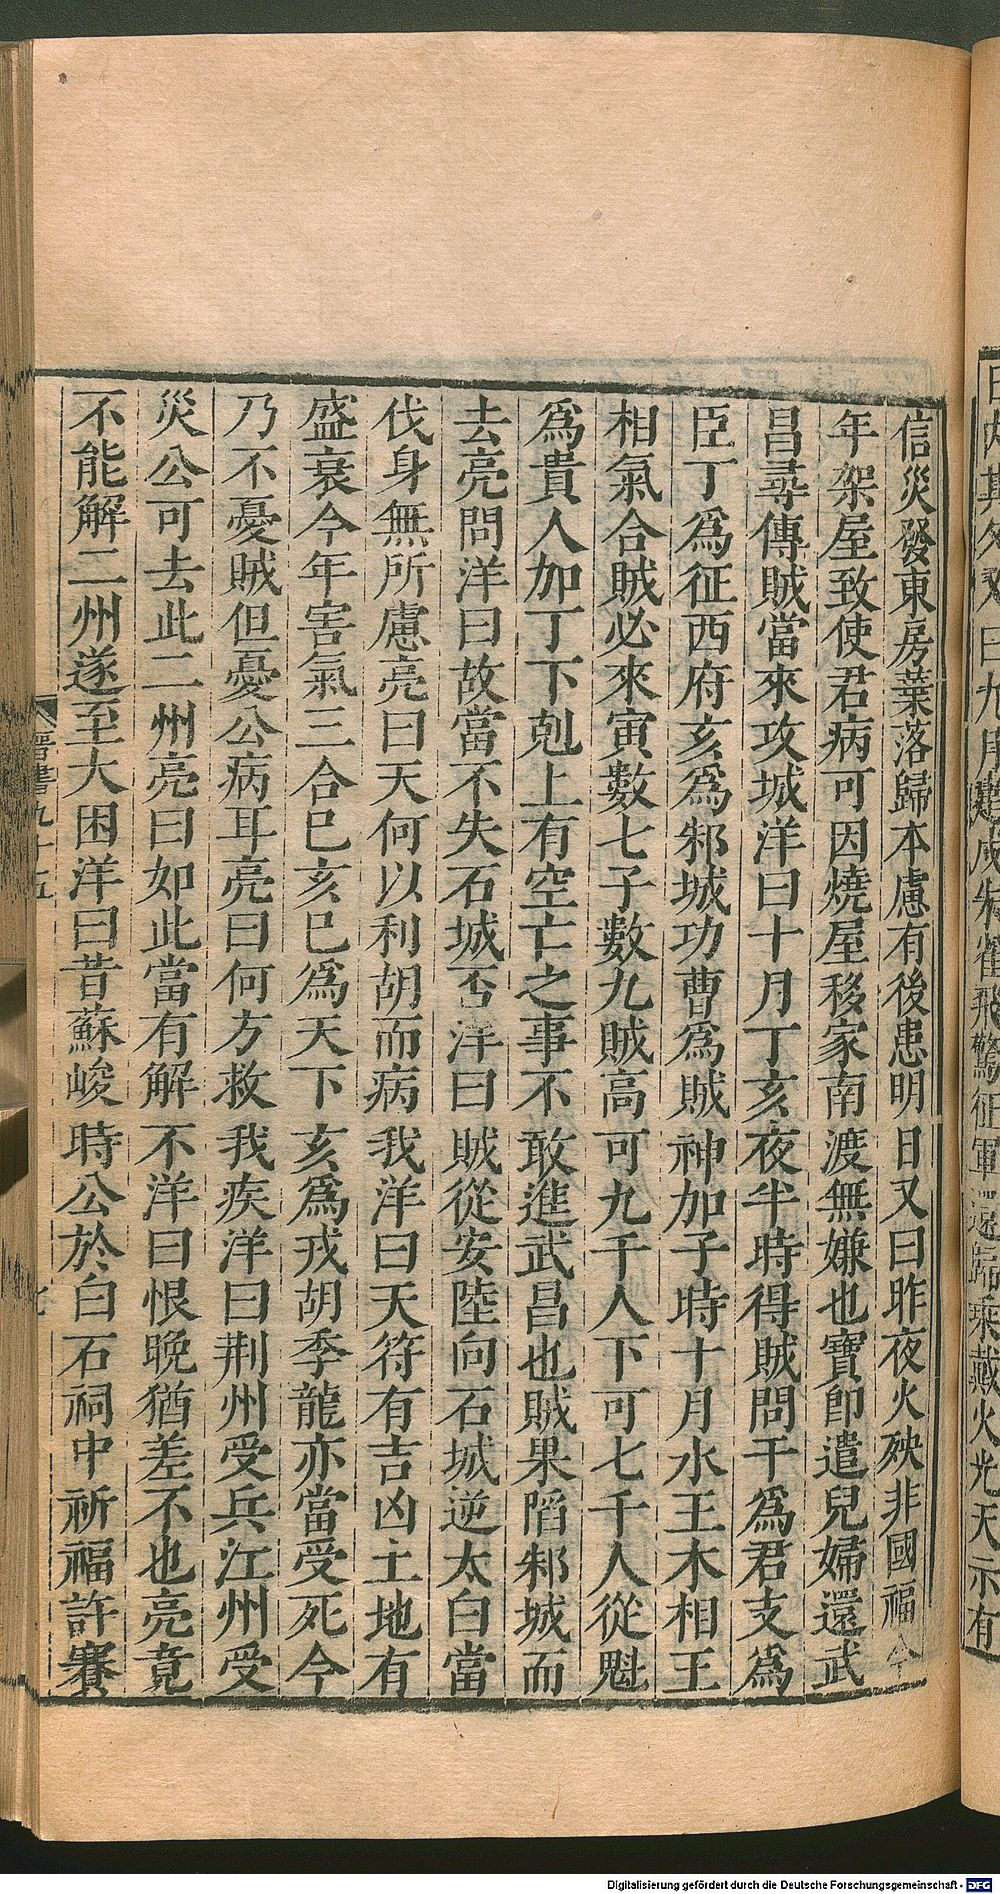 信災發東房葉落歸本慮有後患明日又曰昨夜火殃非國福今
年架屋致使君病可因燒屋移家南渡無嫌也寶即遣兒婦還武
昌尋傳賊當來攻城洋曰十月丁亥夜半時得賊問干為君支為
臣丁為征西府亥為邾城功曹為賊神加子時十月水王木相王
相氣合賊必來寅數七子數九賊高可九千人下可七千人從魁
為貴人加丁下剋上有空亡之事不敢進武昌也賊果陷邾城而
去亮問洋曰故當不失石城否洋曰賊從安陸向石城逆太白當
伐身無所慮亮曰天何以利胡而病我洋曰天符有吉凶土地有
盛衰今年害氣三合巳亥巳為天下亥為戎胡季龍亦當受死今
乃不憂賊但憂公病耳亮曰何方救我疾洋曰荆州受兵江州受
災公可去此二州亮曰如此當有解不洋曰恨晚猶差不也亮竟
不能解二州遂至大困洋曰昔蘇峻時公於白石祠中祈福許賽
晉書九十五
七
Digitalisierung gefördert durch die Deutsche Forschungsgemeinschaft - DFG